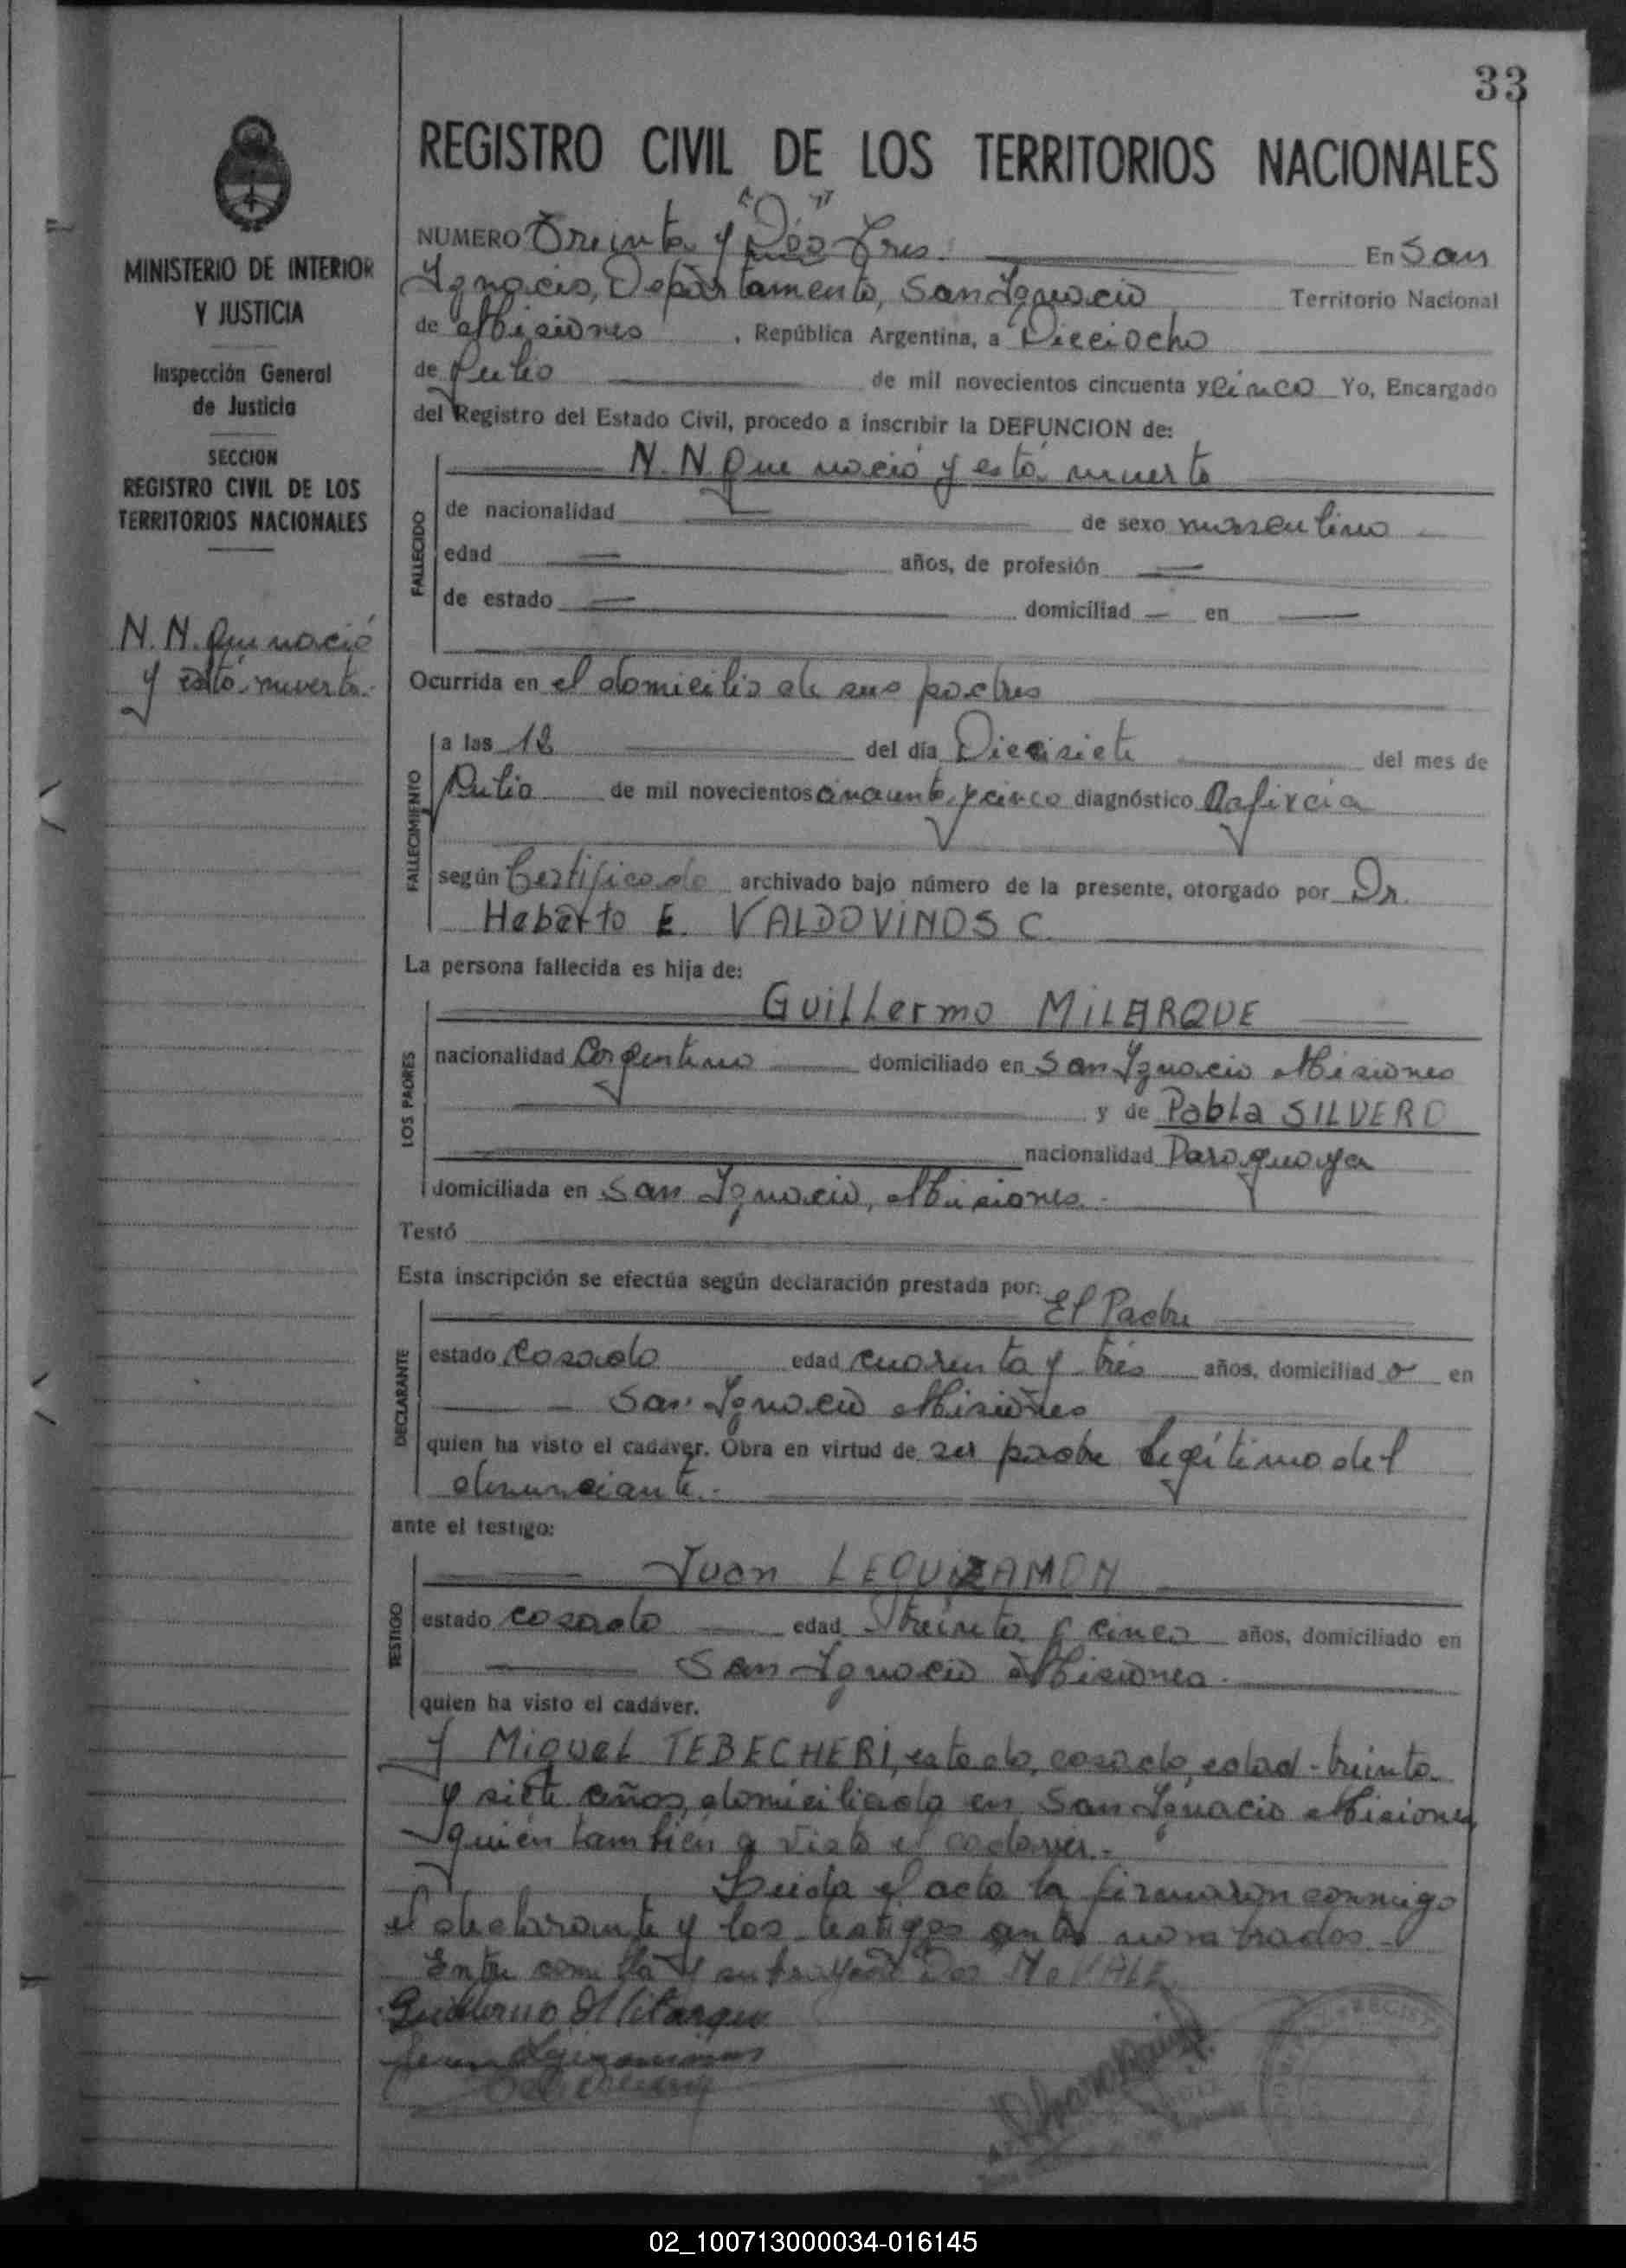 33
REGISTRO CIVIL DE LOS TERRITORIOS NACIONALES
MINISTERIO DE INTERIOR
Y JUSTICIA
Inspección General
de Justicia
SECCION
REGISTRO CIVIL DE LOS
TERRITORIOS NACIONALES
N. N. Que nació
y está muerto.
NUMERO Treinta y "Dos" Tres. En San
Ignacio, Departamento, San Ignacio Territorio Nacional
de Misiones, República Argentina, a Dieciocho
de Julio de mil novecientos cincuenta y Cinco Yo, Encargado
del Registro del Estado Civil, procedo a inscribir la DEFUNCION de:
N. N. Que nació y está muerto
FALLECIDO
de nacionalidad de sexo masculino
edad años, de profesión
de estado domiciliad en
Ocurrida en el domicilio de sus padres
FALLECIMIENTO
a las 12 del día Diecisiete del mes de
Julio de mil novecientos cincuenta y cinco diagnóstico Asfixcia
según Certificado archivado bajo número de la presente, otorgado por Dr.
Heberto E. VALDOVINOS C.
La persona fallecida es hija de:
LOS PADRES
Guillermo MILARQUE
nacionalidad Argentino domiciliado en San Ignacio Misiones
y de Pabla SILVERO
nacionalidad Paraguaya
domiciliada en San Ignacio, Misiones.
Testó
Esta inscripción se efectúa según declaración prestada por:
El Padre
DECLARANTE
estado Casado edad cuarenta y tres años, domiciliad o en
San Ignacio Misiones
quien ha visto el cadáver. Obra en virtud de ser padre legítimo del
denunciante.-
ante el testigo:
Juan LEQUIZAMON
TESTIGO
estado casado edad Treinta y cinco años, domiciliado en
San Ignacio Misiones.
quien ha visto el cadáver.
Y Miguel TEBECHERI, estado, casado, edad treinta
y siete años, domiciliado en San Ignacio Misiones
quién también a visto el cadaver.-
Leida el acta la firmaron conmigo
el declarante y los testigos antes nombrados.-
Entre comilla y subrayado Dos No VALE
Guillermo Milarque
02_100713000034-016145